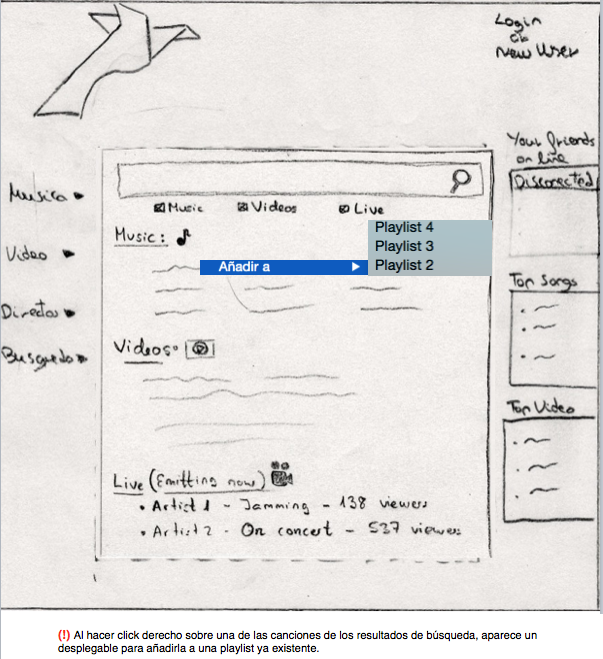 Login
or
New User
Your friends
on line
Disconected
Musica
Video
Directos
Busqueda
Music
Videos
Live
Playlist 4
Playlist 3
Playlist 2
Añadir a
Music:
Videos:
Live (Emitting now)
• Artist 1 - Jamming - 138 viewers
• Artist 2 - On concert - 537 viewers
Top Songs
Top Video
(!) Al hacer click derecho sobre una de las canciones de los resultados de búsqueda, aparece un
desplegable para añadirla a una playlist ya existente.